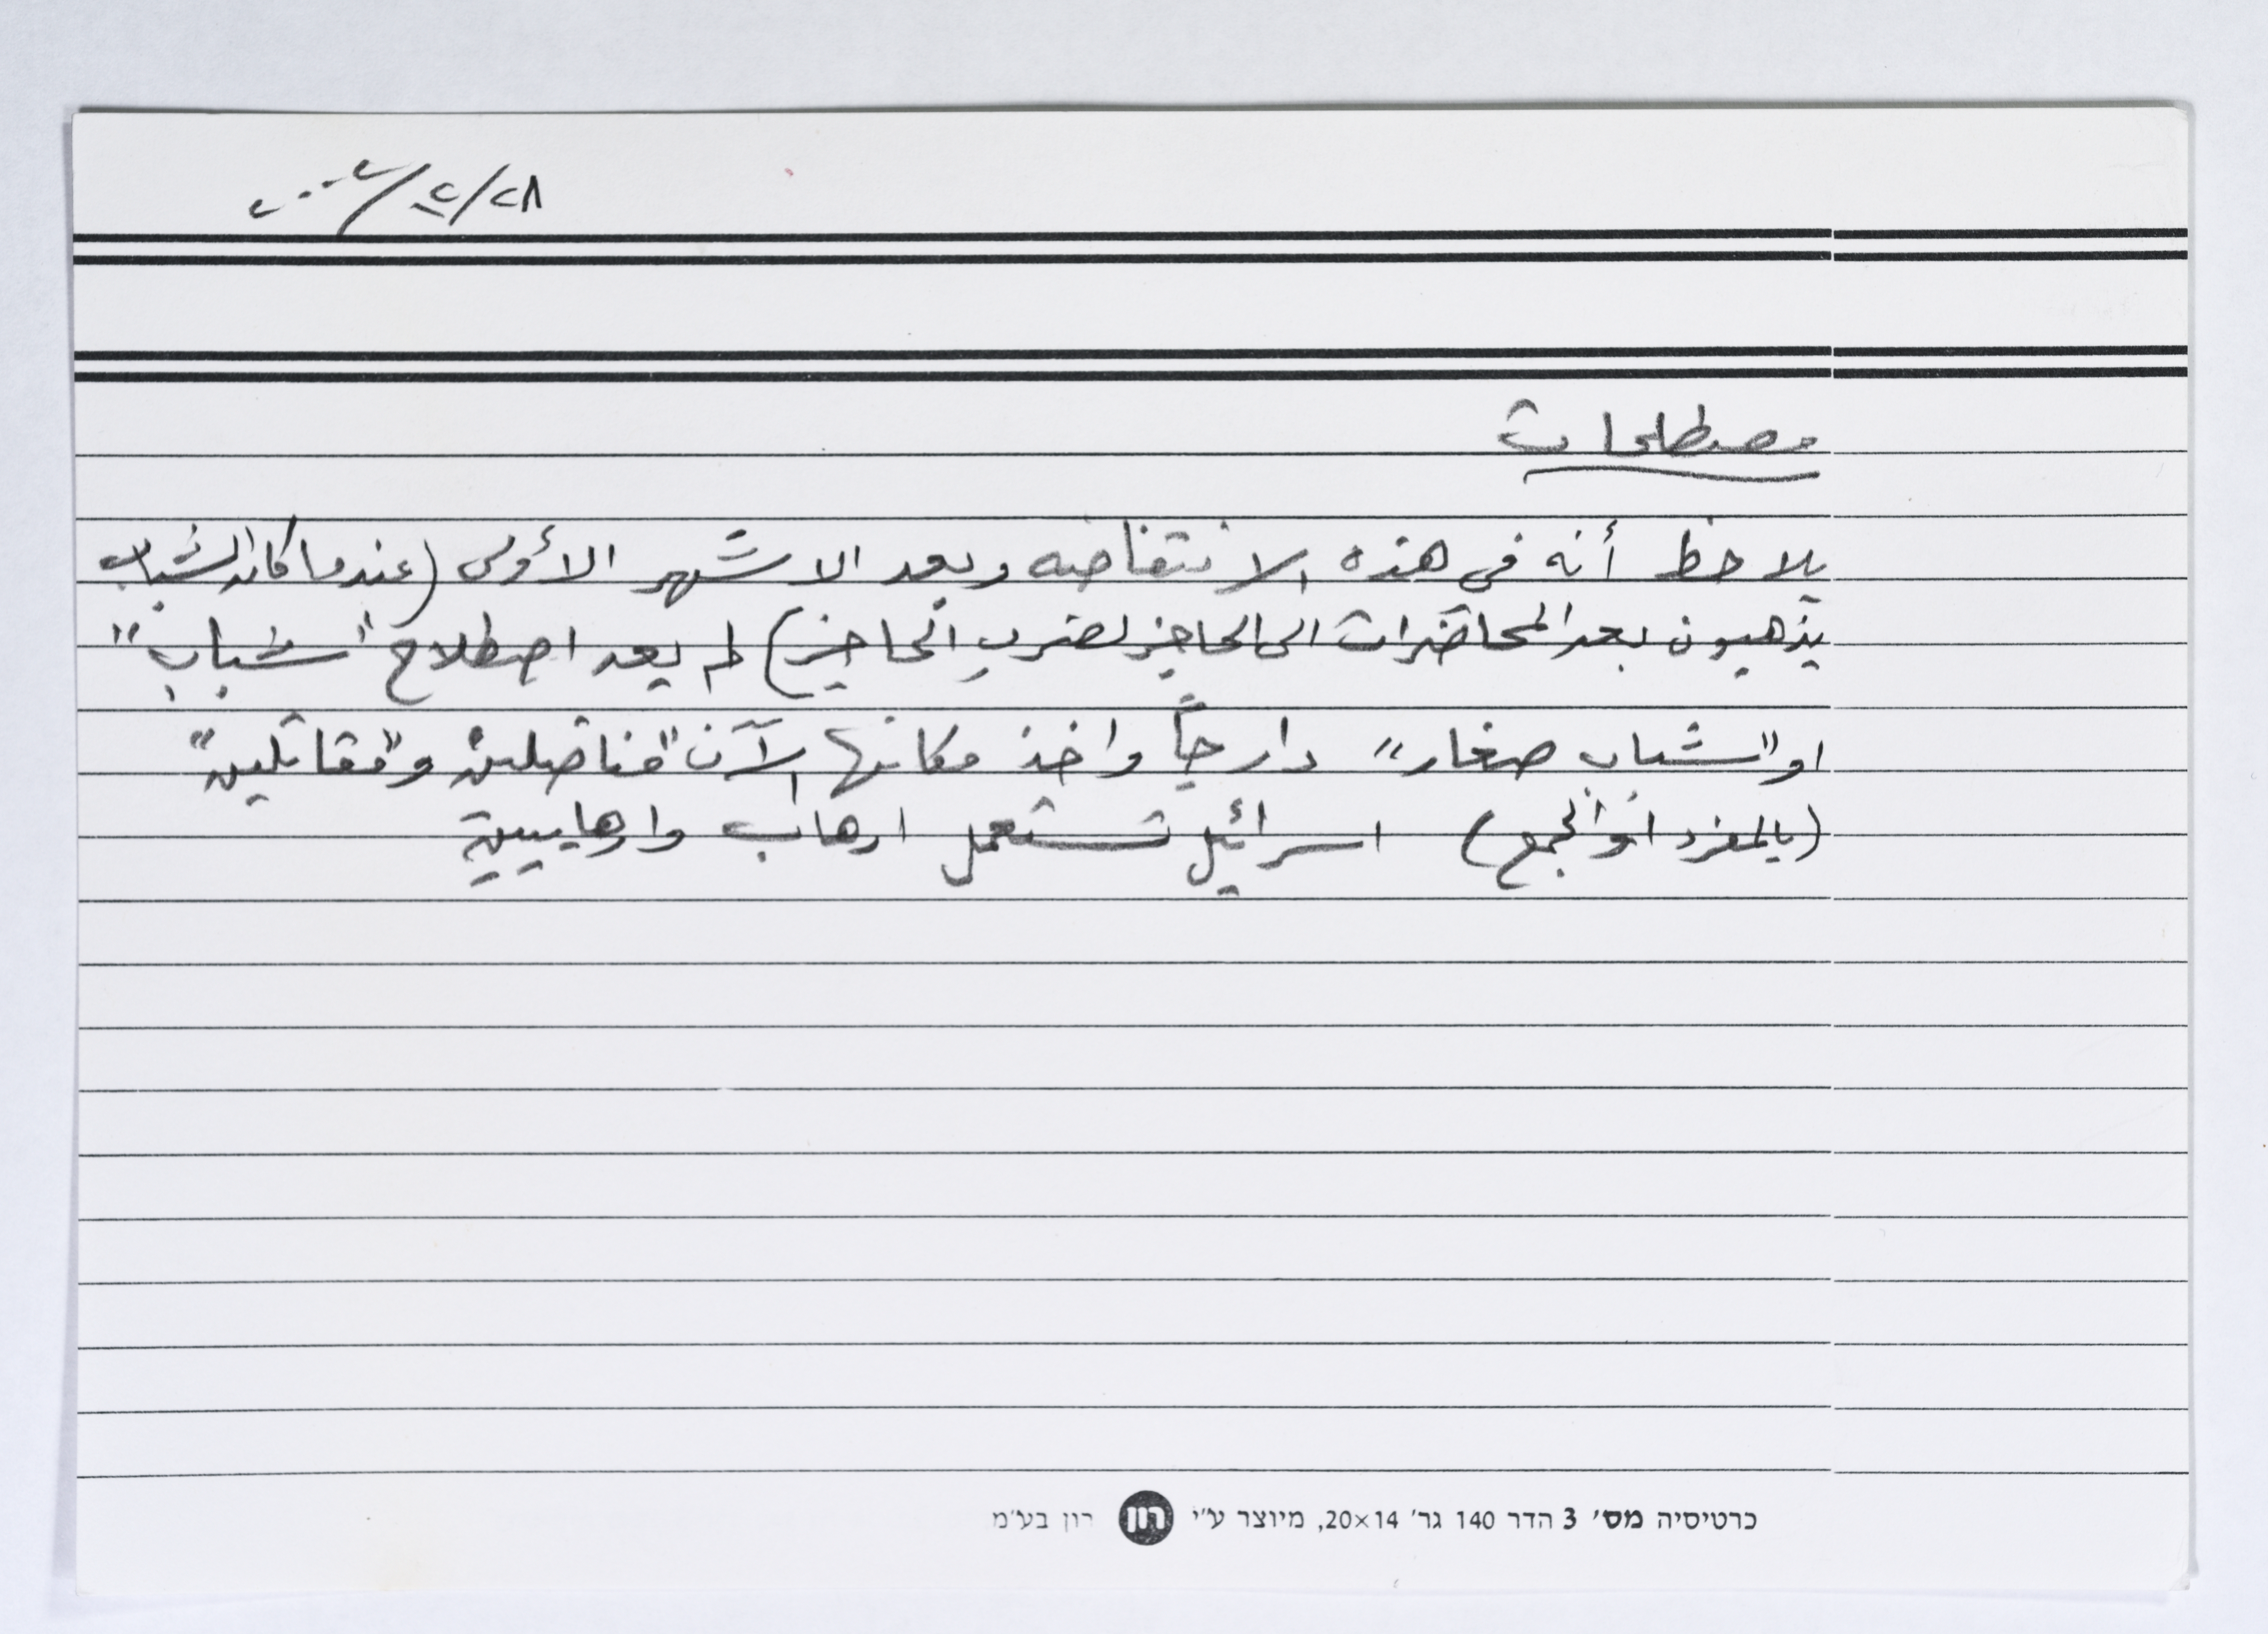 ٢٨/٢/٢٠٠٢
مصطلحات
يلاحظ أنه في هذه الانتفاضه وبعد الاشهر الأولى (عندما كان الشباب
يذهبون بعد المحاضرات الى الحاجز لضرب الحاجز) لم يعد اصطلاح "شباب"
او "شباب صغار" دارجاً واخذ مكانها الآن "مناضلين" و"مقاتلين"
(بالمفرد او الجمع) اسرائيل تستعمل ارهاب وارهابيين
כרטיסיה מס׳ 3 הדר 140 גר׳ 20×14, מיוצר ע״י רון רון בע״מ